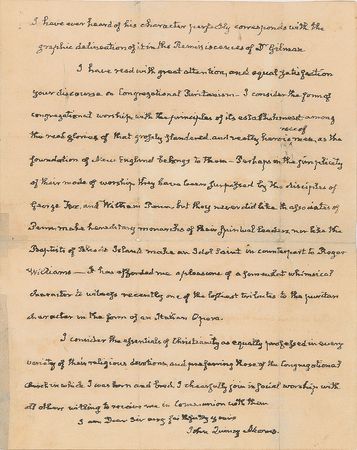 I have ever heard of his character perfectly corresponds with the
graphic delineation of it in the Reminiscences of Dr Gilman
I have read with great attention, and equal satisfaction
your discourse on Congregational Puritanism – I consider the form of
congregational worship, with the principles of its establishment among
the real glories of that grossly slandered, and really heroic race of men, as the
foundation of New England belongs to them – Perhaps in the simplicity
of their mode of worship they have been surpassed by the disciples of
George Fox, and William Penn, but they never did like the associates of
Penn make hereditary monarchs of their spiritual leaders, nor like the
Baptists of Rhode Island make an Idol Saint in counterpart to Roger
Williams – It has afforded me a pleasure of a somewhat whimsical
character to witness recently one of the loftiest tributes to the puritan
character in the form of an Italian Opera.
I consider the essentials of Christianity as equally professed in every
variety of their religious devotions, and preferring those of the Congregational
in which I was born and bred, I chearfully join in social worship with
all others willing to receive me in Communion with them
I am Dear Sir very faithfully yours
John Quincy Adams.